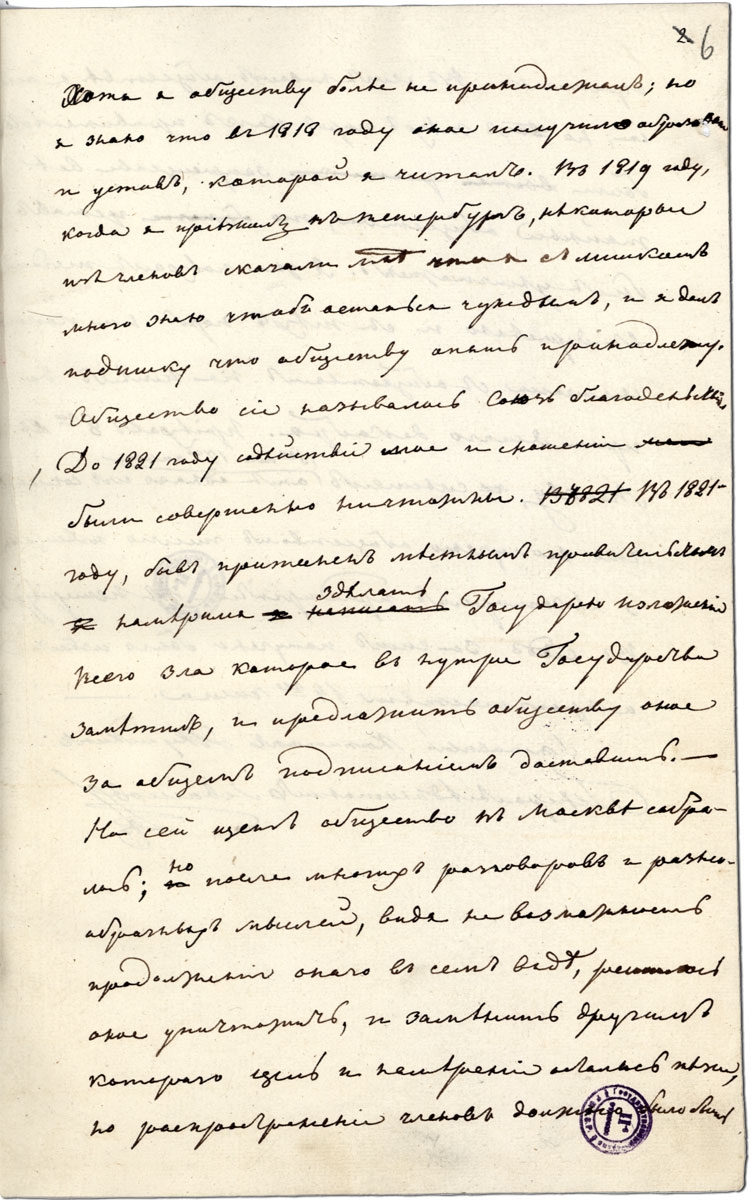 2. 6
Хотя я обществу болѣе не принадлежалъ; но
я знаю что въ 1818 году оное получило образован
и уставъ, которой я читалъ. Въ 1819 году,
когда я пріѣзжалъ въ петербургъ, нѣкоторые
изъ членовъ сказали мнѣ что я слишкомъ
много знаю чтобъ остаться чуждымъ, и я далъ
подписку что обществу опять принадлежу.
Общество сіе называлось Союзъ благоденствія
До 1821 году содѣйствіе мое и сношеніи мои
были совершенно ничтожны. В 1821 Въ 1821
году, бывъ притѣсненъ мѣстнымъ
намѣрился написать здѣлать Государю изложеніе
всего зла которое въ нутре Государства
замѣтилъ, и предложить обществу оное
за общимъ подписаніемъ доставить. —
На сей щетъ общество въ Москвѣ собра-
лось; но после многихъ разговоровъ и разно-
образныхъ мыслей, видя не возможность
продолженіи онаго в семъ видѣ, решилось
оное уничтожить, и замѣнить другимъ
котораго цель и намѣреніи остались тѣже,
но распространеніе членовъ должно было быть